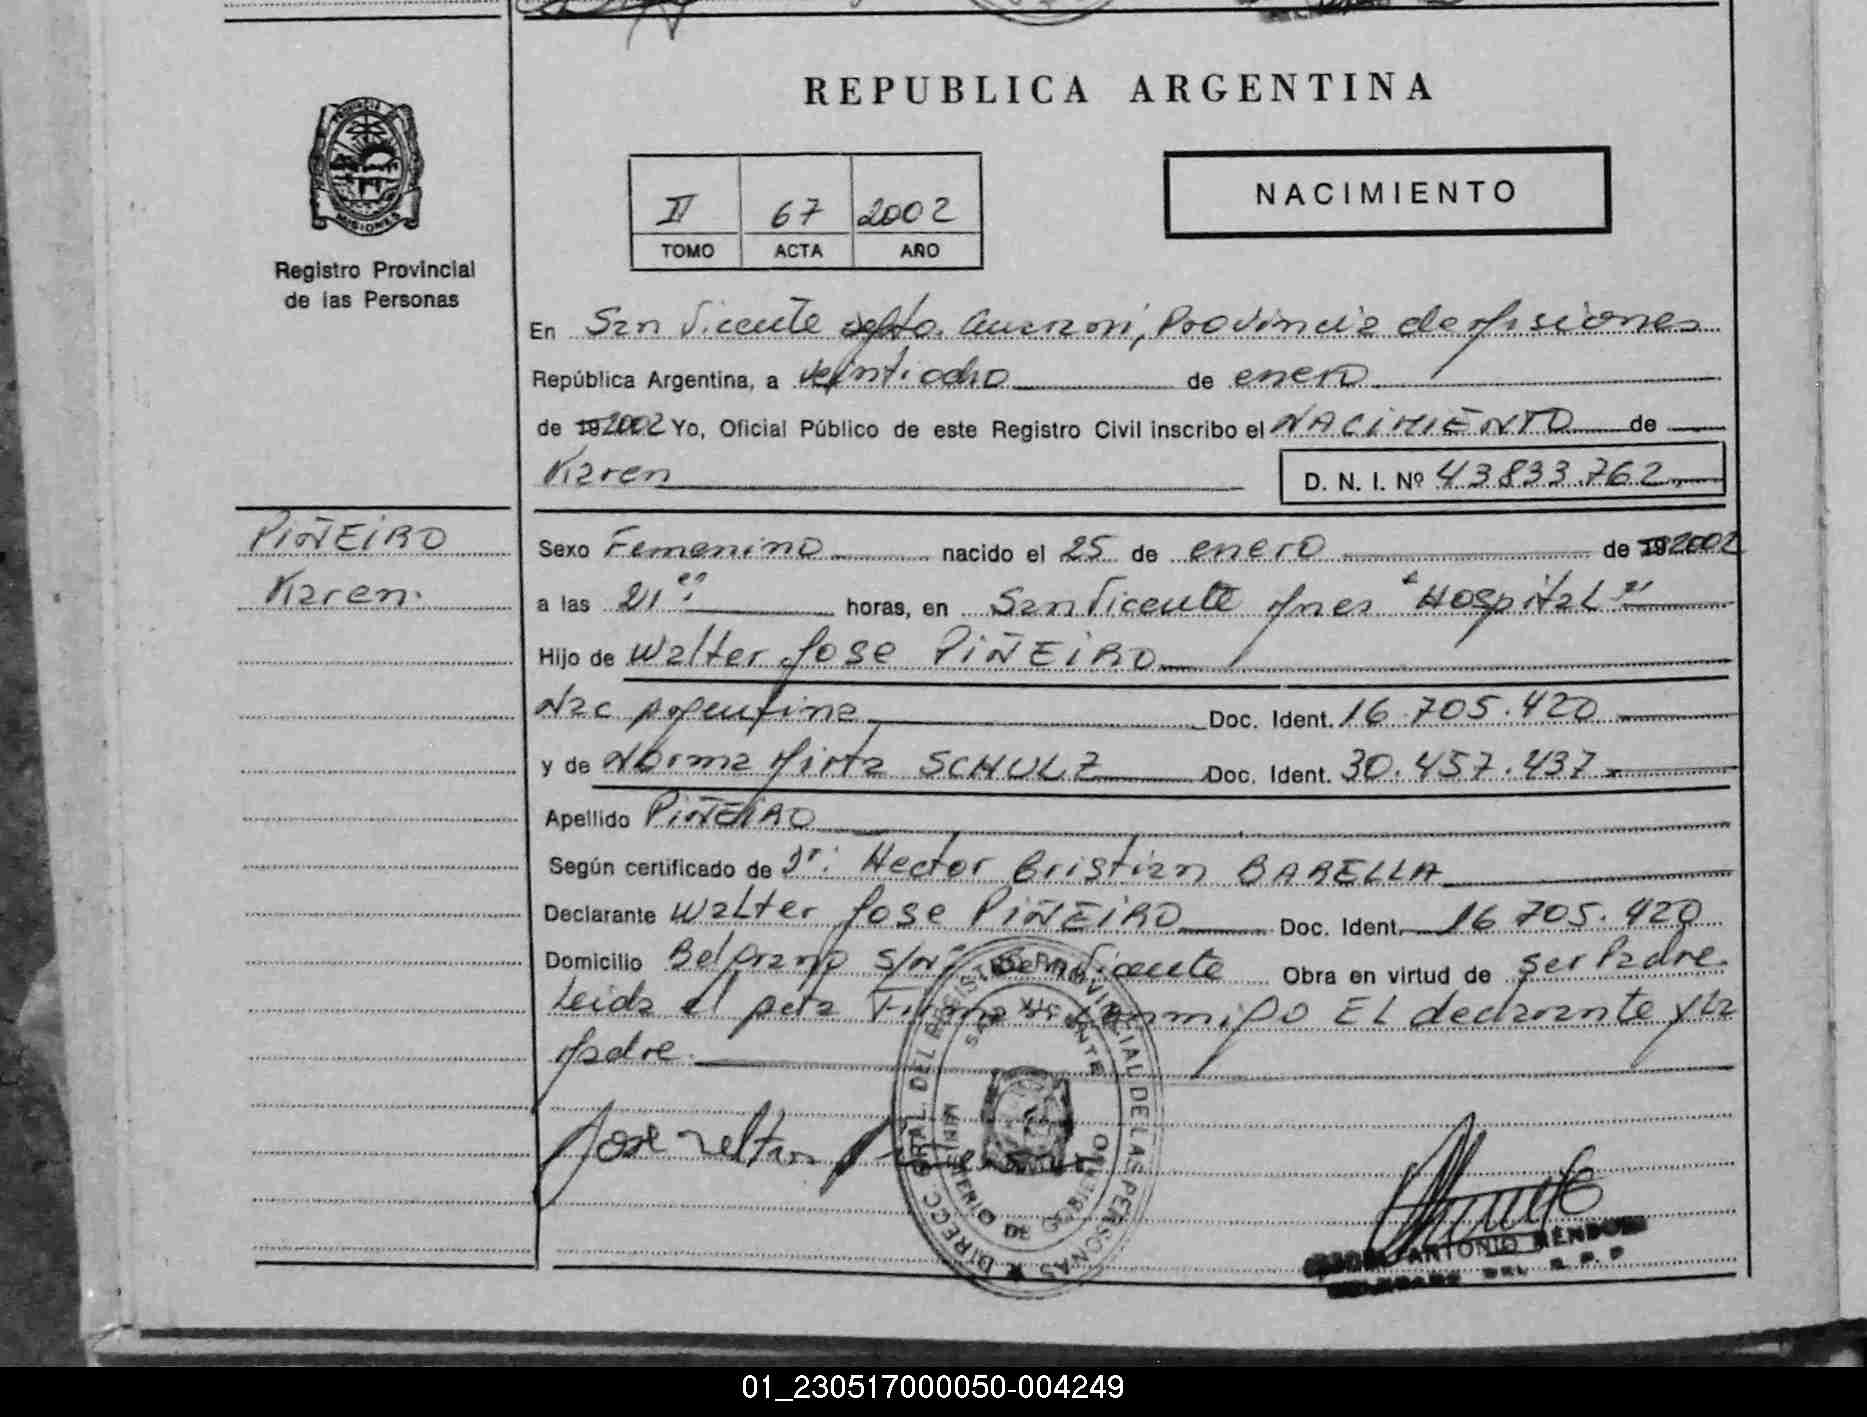 REPUBLICA ARGENTINA
PROVINCIA
MISIONES
Registro Provincial
de las Personas
II 67 2002
TOMO ACTA AÑO
NACIMIENTO
En San Vicente depto. Guarani, Provincia de Misiones
República Argentina, a veintiocho de enero
de 19 2002 Yo, Oficial Público de este Registro Civil inscribo el NACIMIENTO de
Karen D. N. I. Nº 43833.762
PIÑEIRO
Karen.
Sexo Femenino nacido el 25 de enero de 19 2002
a las 21 horas, en San Vicente Mnes "Hospital"
Hijo de Walter Jose PIÑEIRO
Nac Argentina Doc. Ident. 16.705.420
y de Norma Mirta SCHULZ Doc. Ident. 30.457.437
Apellido PIÑEIRO
Según certificado de Dr: Hector Cristian BARELLA
Declarante Walter Jose PIÑEIRO Doc. Ident. 16 705.420
Domicilio Belgrano S/Nº San Vicente Obra en virtud de ser Padre
Leida el acta Firma conmigo EL declarante y la
Madre.
DIRECC. GRAL. DEL REGISTRO PROVINCIAL DE LAS PERSONAS
SAN VICENTE
MINISTERIO DE GOBIERNO
Jose Walter
ANTONIO MENDOZA
DEL R. P. P
01_230517000050-004249